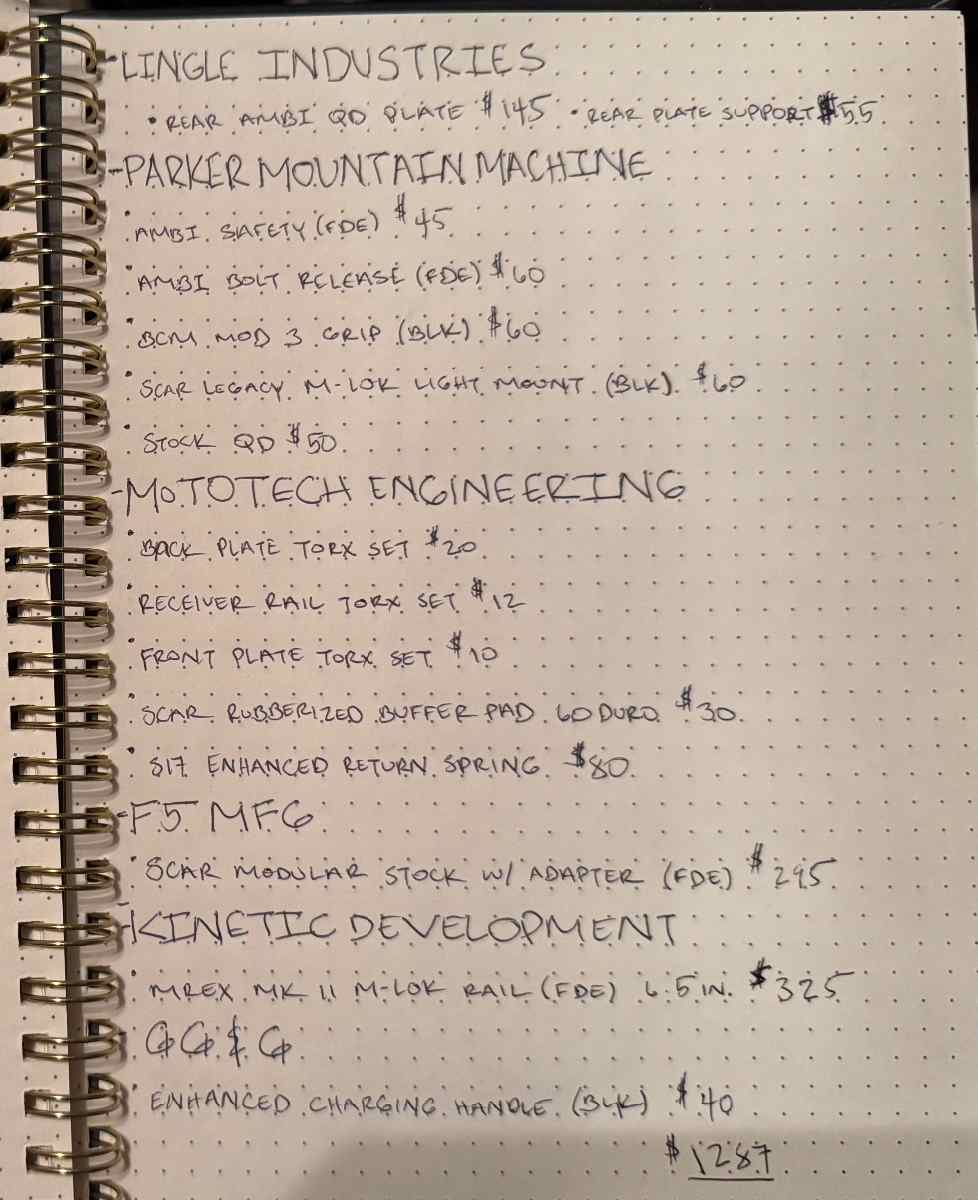 -LINGLE INDUSTRIES
• REAR AMBI QD PLATE $145 • REAR PLATE SUPPORT $55
-PARKER MOUNTAIN MACHINE
• AMBI SAFETY (FDE) $45
• AMBI BOLT RELEASE (FDE) $60
• BCM MOD 3 GRIP (BLK) $60
• SCAR LEGACY M-LOK LIGHT MOUNT (BLK) $60
• STOCK QD $50
-MOTOTECH ENGINEERING
• BACK PLATE TORX SET $20
• RECEIVER RAIL TORX SET $12
• FRONT PLATE TORX SET $10
• SCAR RUBBERIZED BUFFER PAD 60 DURO $30
• S17 ENHANCED RETURN SPRING $80
-F5 MFG
• SCAR MODULAR STOCK W/ ADAPTER (FDE) $295
-KINETIC DEVELOPMENT
• MREX MK II M-LOK RAIL (FDE) 6.5 IN. $325
- GG&G
• ENHANCED CHARGING HANDLE (BLK) $40
$1287